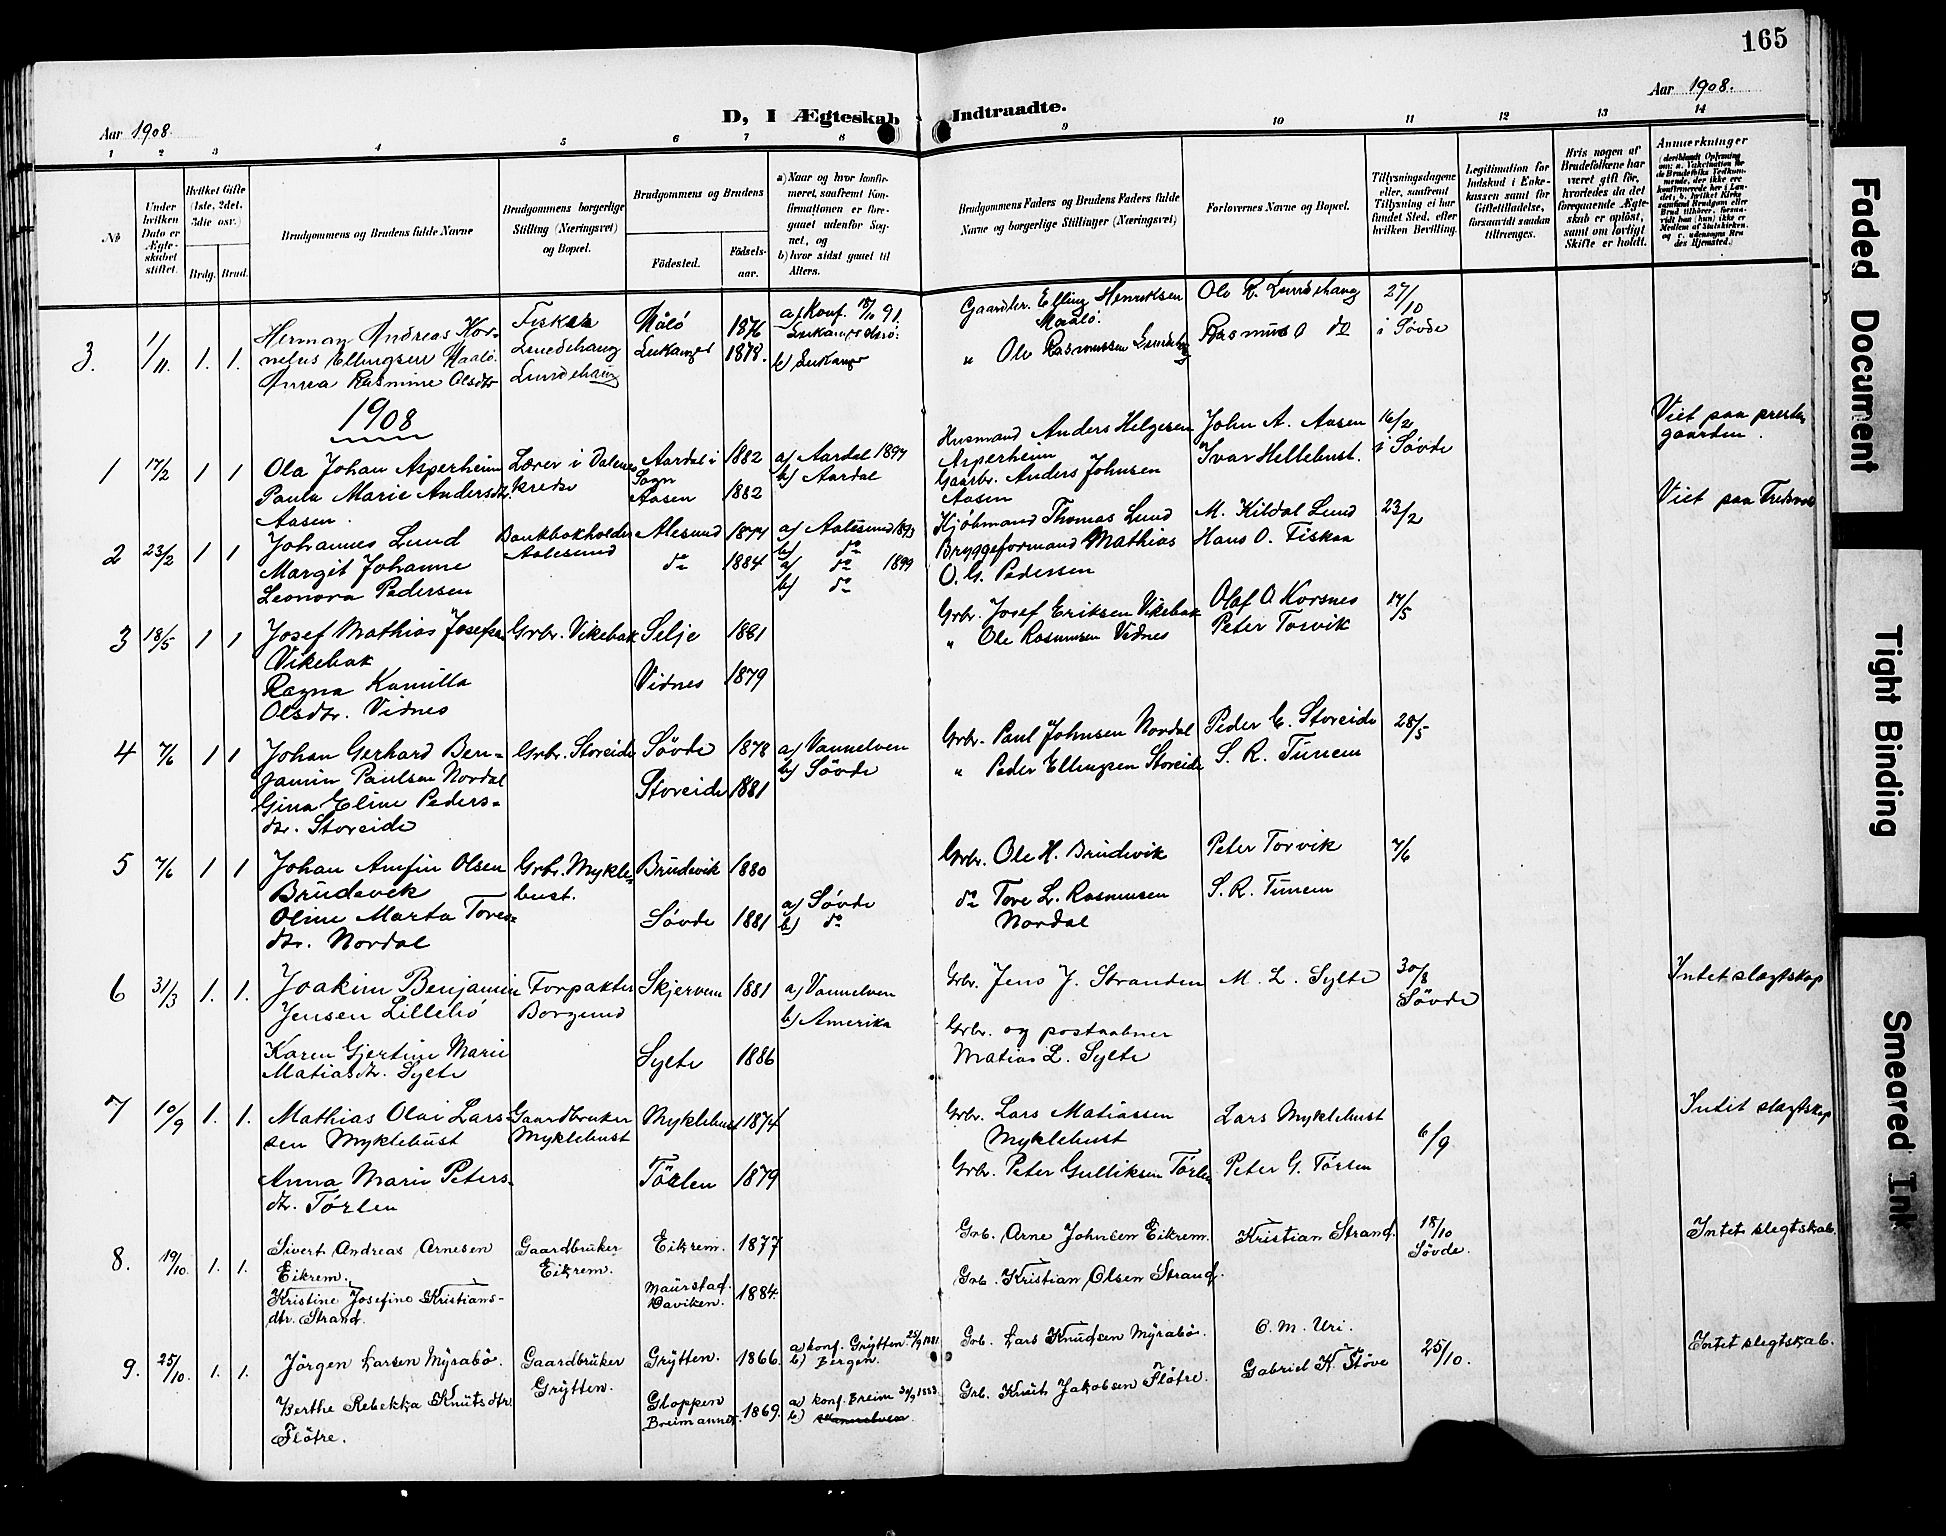 165
Aar 1908.
D, I Ægteskab Indtraadte.
Aar 1908.
1 2 3 4 5 6 7 8 9 10 11 12 13 14
№
Under hvilken Dato er Ægteskabet stiftet.
Hvilket Gifte (1ste, 2det, 3die osv.)
Brdg. Brud.
Brudgommens og Brudens fulde Navne
Brudgommens borgerlige Stilling (Næringsvei) og Bopæl.
Brudgommens og Brudens
Födested.
Födselsaar.
a) Naar og hvor konfirmeret, saafremt Konfirmationen er foregaaet udenfor Sognet, og
b) hvor sidst gaaet til Alters.
Brudgommens Faders og Brudens Faders fulde Navne og borgerlige Stillinger (Næringsvei)
Forlovernes Navne og Bopæl.
Tillysningsdagene eller, saafremt Tillysning ei har fundet Sted, efter hvilken Bevilling.
Legitimation for Indskud i Enkekassen samt for Giftetilladelse, forsaavidt saadan tiltrænges.
Hvis nogen af Brudefolkene har været gift för, hvorledes da det foregaaende Ægteskab er oplöst, samt om lovligt Skifte er holdt.
Anmærkninger
3. 1/11. 1. 1.
Herman Andreas Kornelius Ellingsen Raalö.
Anna Rasmine Olsdtr
Fisker
Lundehaug
Lundehaug
1876
1878.
a) Konf. 91.
Gaardbr. Elling Henriksen
„ Ole Rasmussen
Ole R. Lundehaug
Rasmus O do
27/10
i Søvde
1908
1 17/2 1 1
Ola Johan Asperheim
Paula Marie Andersdtr.
Aasen.
Lærer i Dalenes
kreds
Aardal i
Sogn
Aasen
1882
1882
a) Aardal 1897
b) Aardal
Husmand Anders Helgesen
Asperheim
Gaarbr. Anders Johnsen
Aasen
John A. Aasen
Ivar Hellebust.
16/2
i Søvde
Viet paa prestegaarden.
2 23/2 1 1
Johannes Lund
Margit Johanne
Leonora Pedersen
Bankbokholder
Aalesund
Alesund
do
1874
1884
a) Aalesund 1893
b) do
a) do 1899
b) do
Kjöbmand Thomas Lund
Bryggeformand Mathias
O. G. Pedersen
M. Kildal Lund
Hans O. Fiskaa
23/2
Viet paa
3 18/5 1 1
Josef Mathias Josefsen
Vikebak
Ragna Kamilla
Olsdtr. Vidnes
Grbr. Vikebak
Selje
Vidnes
1881
1879
Grbr. Josef Eriksen Vikebak
„ Ole Rasmusen Vidnes
Olaf O. Korsnes
Peter Torvik
17/5
4 7/6 1 1
Johan Gerhard Benjamin Paulsen Nordal
Gina Eline Pedersdtr. Storeide
Grbr. Storeide
Søvde
Storeide
1878
1881
a) Vannelven
b) Søvde
Grbr. Paul Johnsen Nordal
„ Peder Ellingsen Storeide
Peder E. Storeide
S. R. Tunem
28/5
5 7/6 1 1
Johan Amfin Olsen
Brudevik
Oline Marta Toresdtr. Nordal
Grbr. Myklebust.
Brudevik
Søvde
1880
1881
a) Søvde
b) do
Grbr. Ole H. Brudevik
do Tore L. Rasmusen
Nordal
Peter Torvik
S. R. Tunem
7/6
6 31/3 1. 1.
Joakim Benjamin
Jensen Lillebö
Karen Gjertine Marie
Matiasdtr. Sylte
Forpakter
Borgund
Skjervem
Sylte
1881
1886
a) Vannelven
b) Amerika
Grbr. Jens J. Stranden
Grbr. og postaabner
Matias L. Sylte
M. L. Sylte
30/8
Søvde
Intet slagtskap
7 10/9 1. 1.
Mathias Olai Larssen Myklebust
Anna Marie Petersdtr. Tørlen
Gaardbruker
Myklebust
Myklebust
Törlen
1874
1879
Grbr. Lars Matiassen
Myklebust
Grbr. Peter Gulliksen Tørlen
Lars Myklebust
Peter G. Törlen
6/9
Intet slagtskap
8. 19/10. 1. 1.
Sivert Andreas Arnesen
Eikrem.
Kristine Josefine Kristiansdtr. Strand.
Gaardbruker
Eikrem.
Eikrem.
Maurstad.
Daviken.
1877
1884.
Grb. Arne Johnsen Eikrem.
Grb. Kristian Olsen Strand.
Kristian Strand.
18/10
Søvde.
Intet slegtskab.
9. 25/10. 1. 1.
Jörgen Larsen Myrabö.
Berthe Rebekka Knutsdtr.
Flötre.
Gaardbruker
Grytten.
Grytten.
Gloppen
Breimannex.
1866.
1869.
a) konf. Grytten. 25/9 1881
b) Bergen.
a) konf. Breim 30/9 1883.
b) Vannelven.
Grb. Lars Knudsen Myrabö.
Grb. Knut Jakobsen Flötre.
O. M. Uri.
Gabriel K. Støve
25/10.
Intet slegtskab.
Faded Document
Tight Binding
Smeared Ink